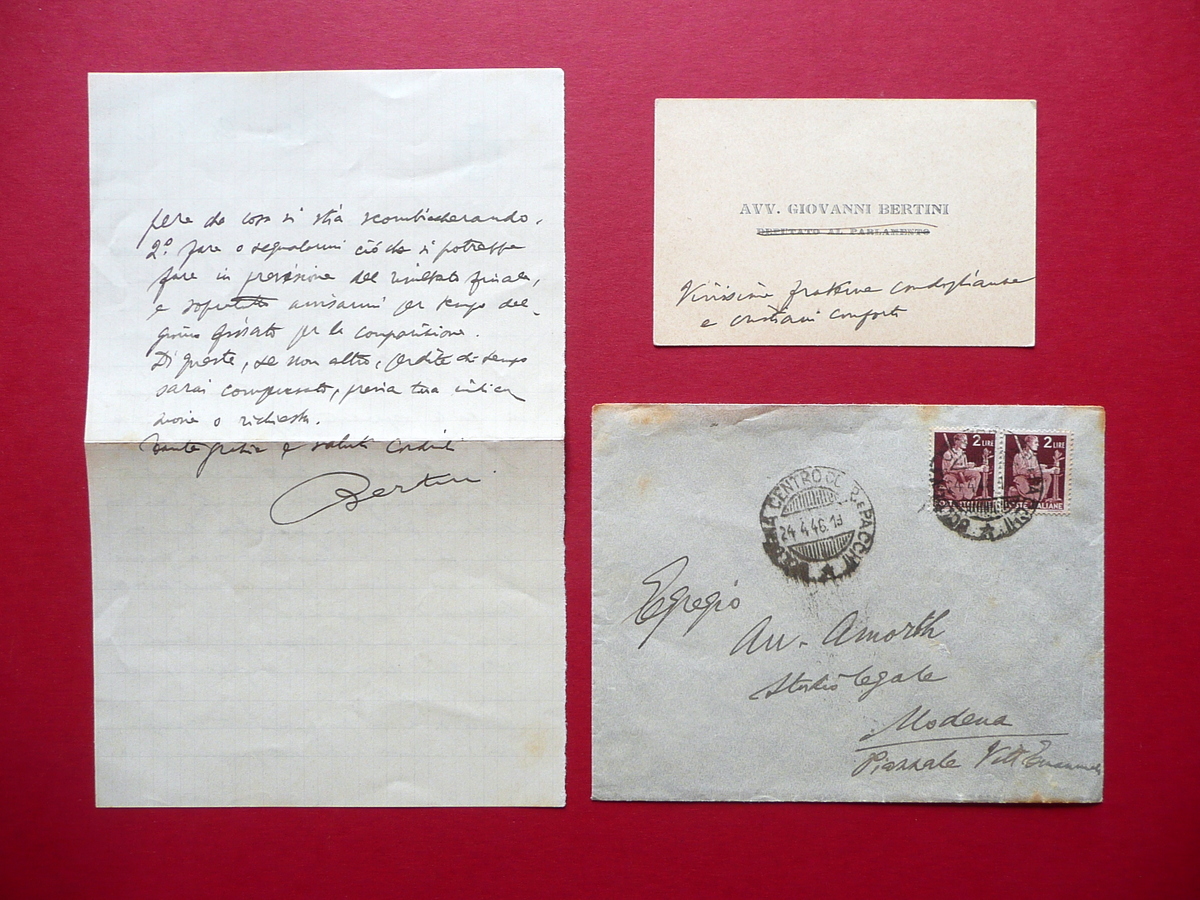 pere da cosa si stia scombiccherando.
2.º fare o segnalarmi ciò che si potrebbe
fare in previsione del risultato finale,
e soprattutto avvisarmi per tempo del
giorno fissato per la comparizione.
Di queste, se non altro, perdite di tempo
sarai compensato, previa tua indica
zione o richiesta.
Tante grazie e saluti cordiali
Bertini
AVV. GIOVANNI BERTINI
DEPUTATO AL PARLAMENTO
Vivissime fraterne condoglianze
e cristiani conforti
2 LIRE
2 LIRE
POSTE ITALIANE
CENTRO CORR. E PACCHI
24.4.46.19
Egregio
Avv. Amorth
Studio legale
Modena
Piazzale Vitt Emanuele